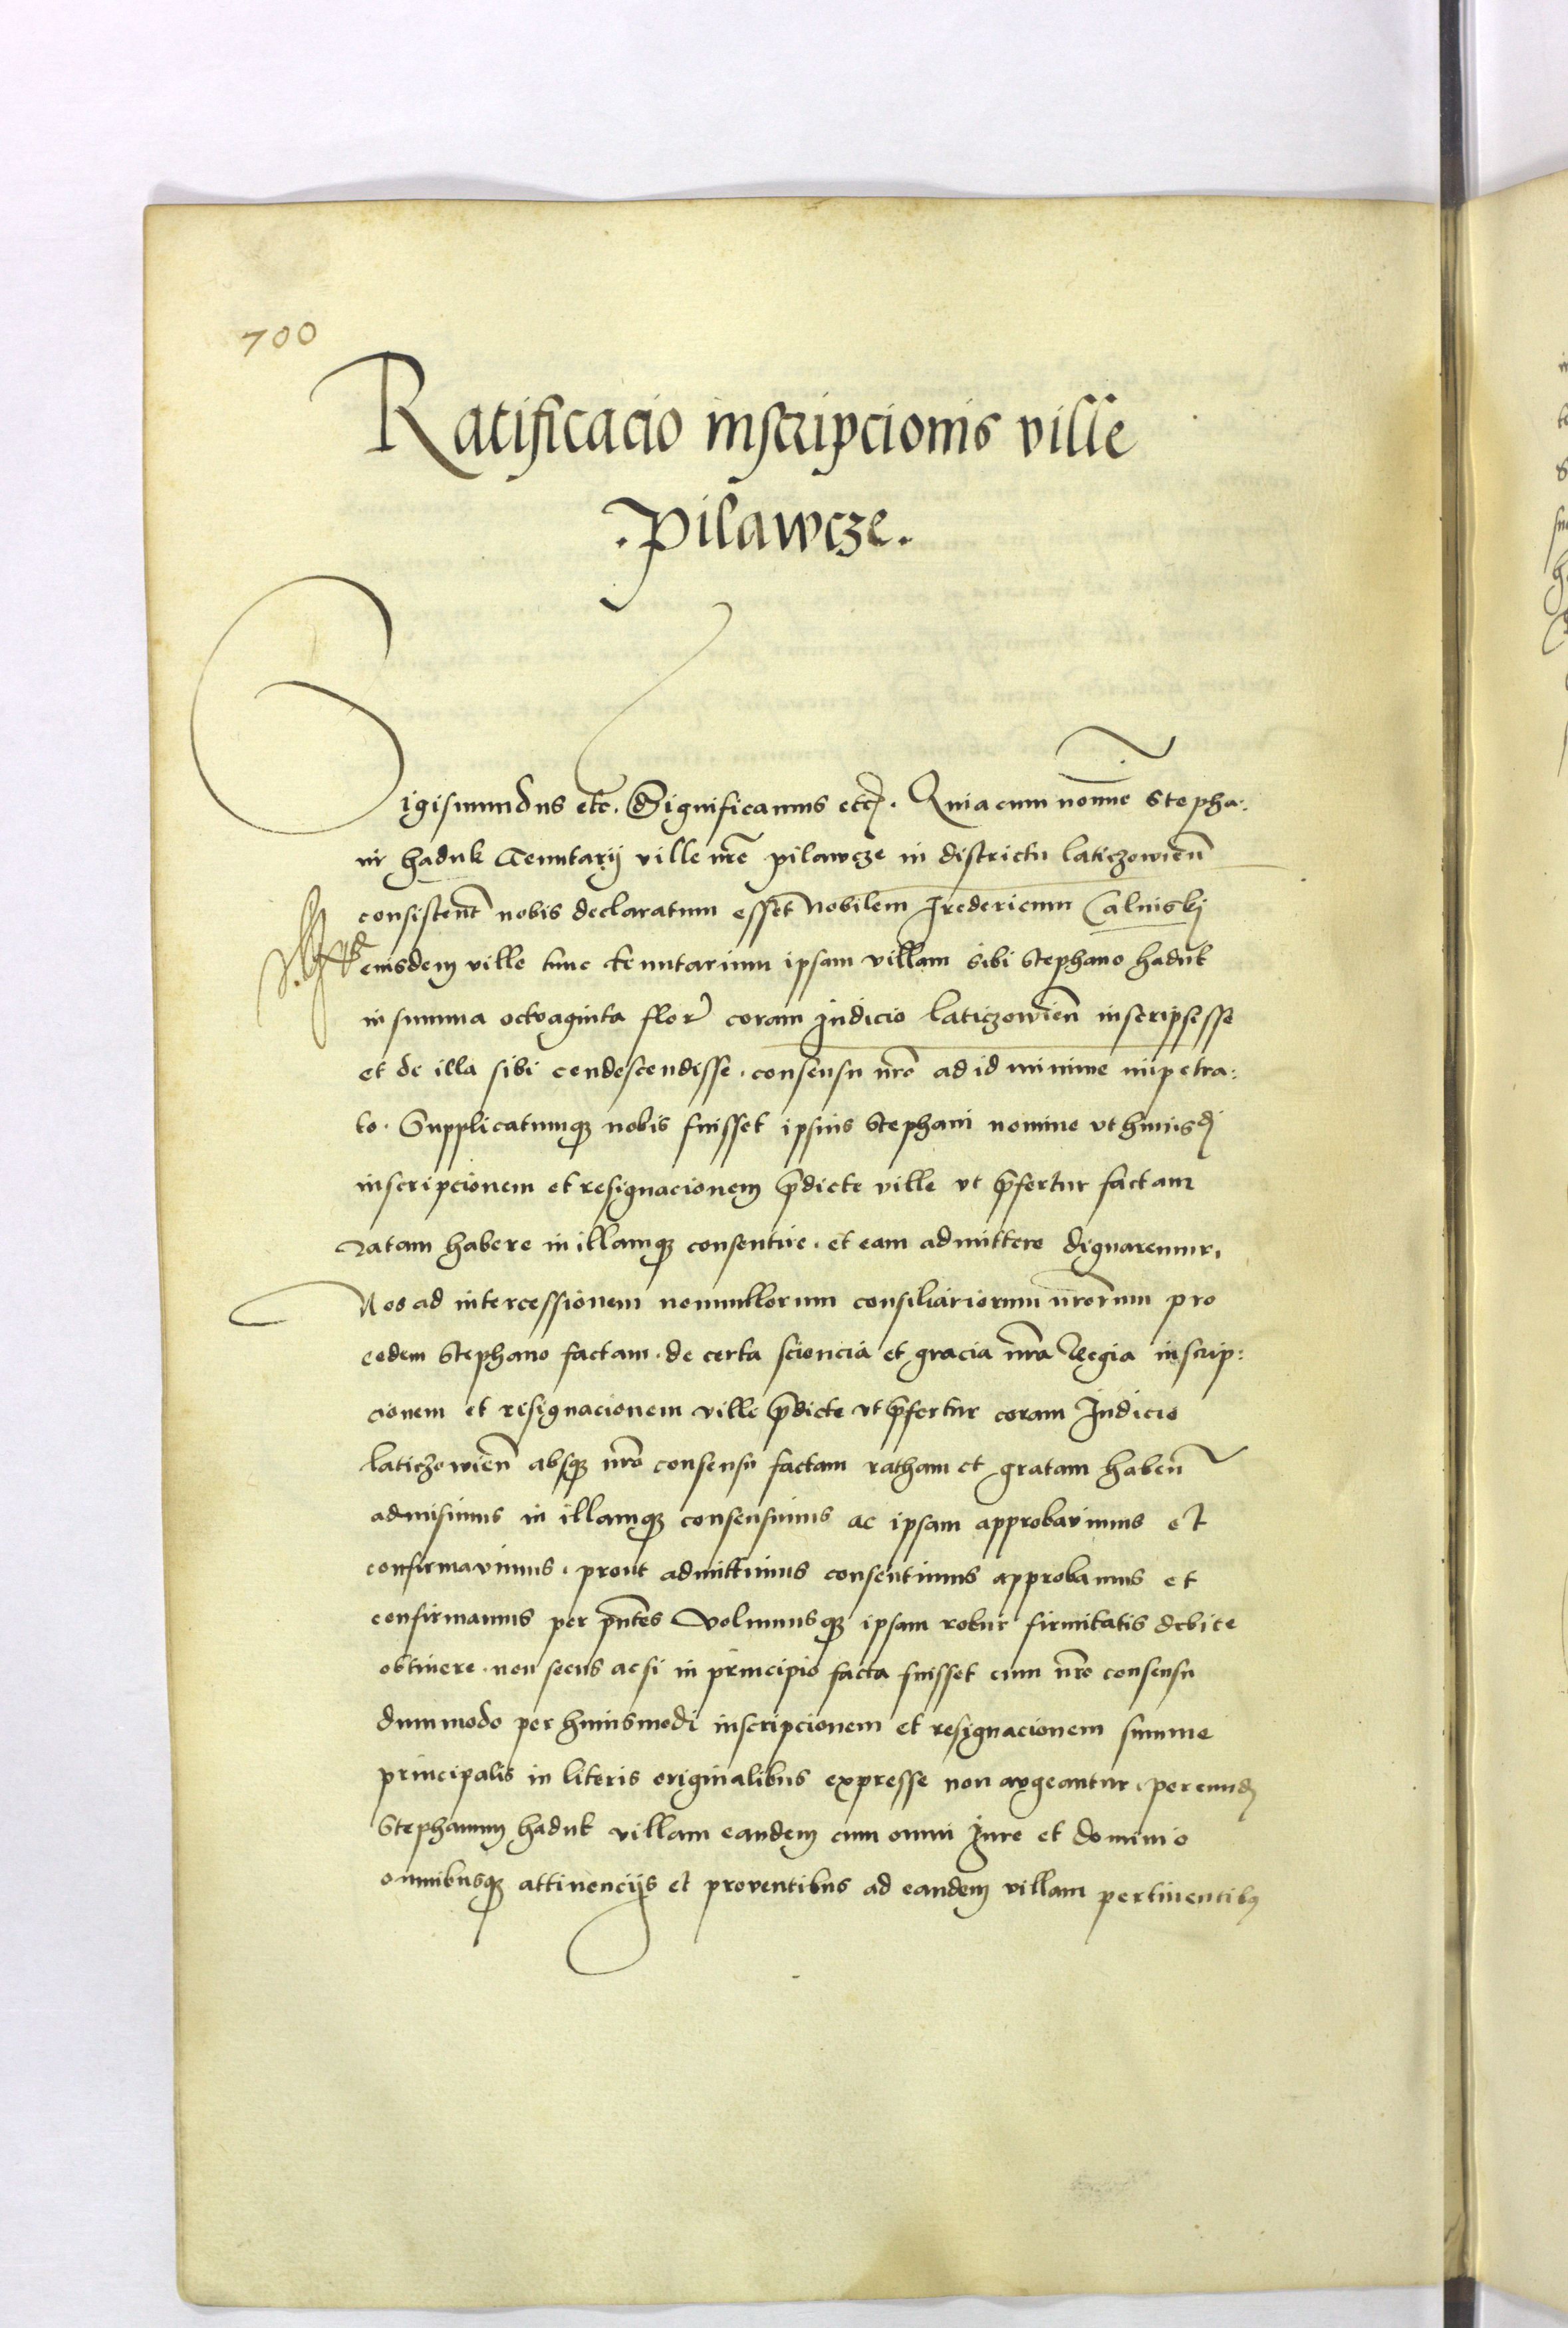 700
Ratificacio inscripcionis ville
.Pilawcze.
Sigismundus etc. Significamus etc. Quia cum noīne Stepha:
ni Haduk Tenutarij ville nr̄e pilawcze in districtu laticzowien̄
consisten̄t nobis declaratum esset Nobilem Fredericum Calniskj
eiusdem ville tunc tenutarium ipsam villam sibi Stephano haduk
in summa octuaginta flor̄ coram Iudicio laticzowien̄ inscripsesse
et de illa sibi condescendisse. consensu nr̄o ad id minime impetra:
to. Supplicatumqꝫ nobis fuisset ipsius Stephani nomine vt huiusdj
inscripcionem et resignacionem p̄dicte ville vt p̄fertur factam
ratam habere in illamqꝫ consentire. et eam admittere dignaremur.
Nos ad intercessionem nonnullorum consiliariorum nr̄orum pro
eodem Stephano factam. de certa sciencia et gracia nr̄a Regia inscrip:
cionem et resignacionem ville p̄dicte vt p̄fertur coram Iudicio
laticzowien̄ absqꝫ nr̄o consensu factam ratham et gratam haben̄
admisimus in illamqꝫ consensimus ac ipsam approbavimus et
confirmavimus. prout admittimus consentimus approbamus et
confirmamus per pn̄tes Volumusqꝫ ipsam robur firmitatis debite
obtinere. non secus ac si in principio facta fuisset cum nr̄o consensu
dummodo per huiusmodi inscripcionem et resignacionem summe
principalis in literis originalibus expresse non augeantur. per eund̄
Stephanum haduk villam eandem cum omni Iure et dominio
omnibusqꝫ attinencijs et proventibus ad eandem villam pertinentibꝰ